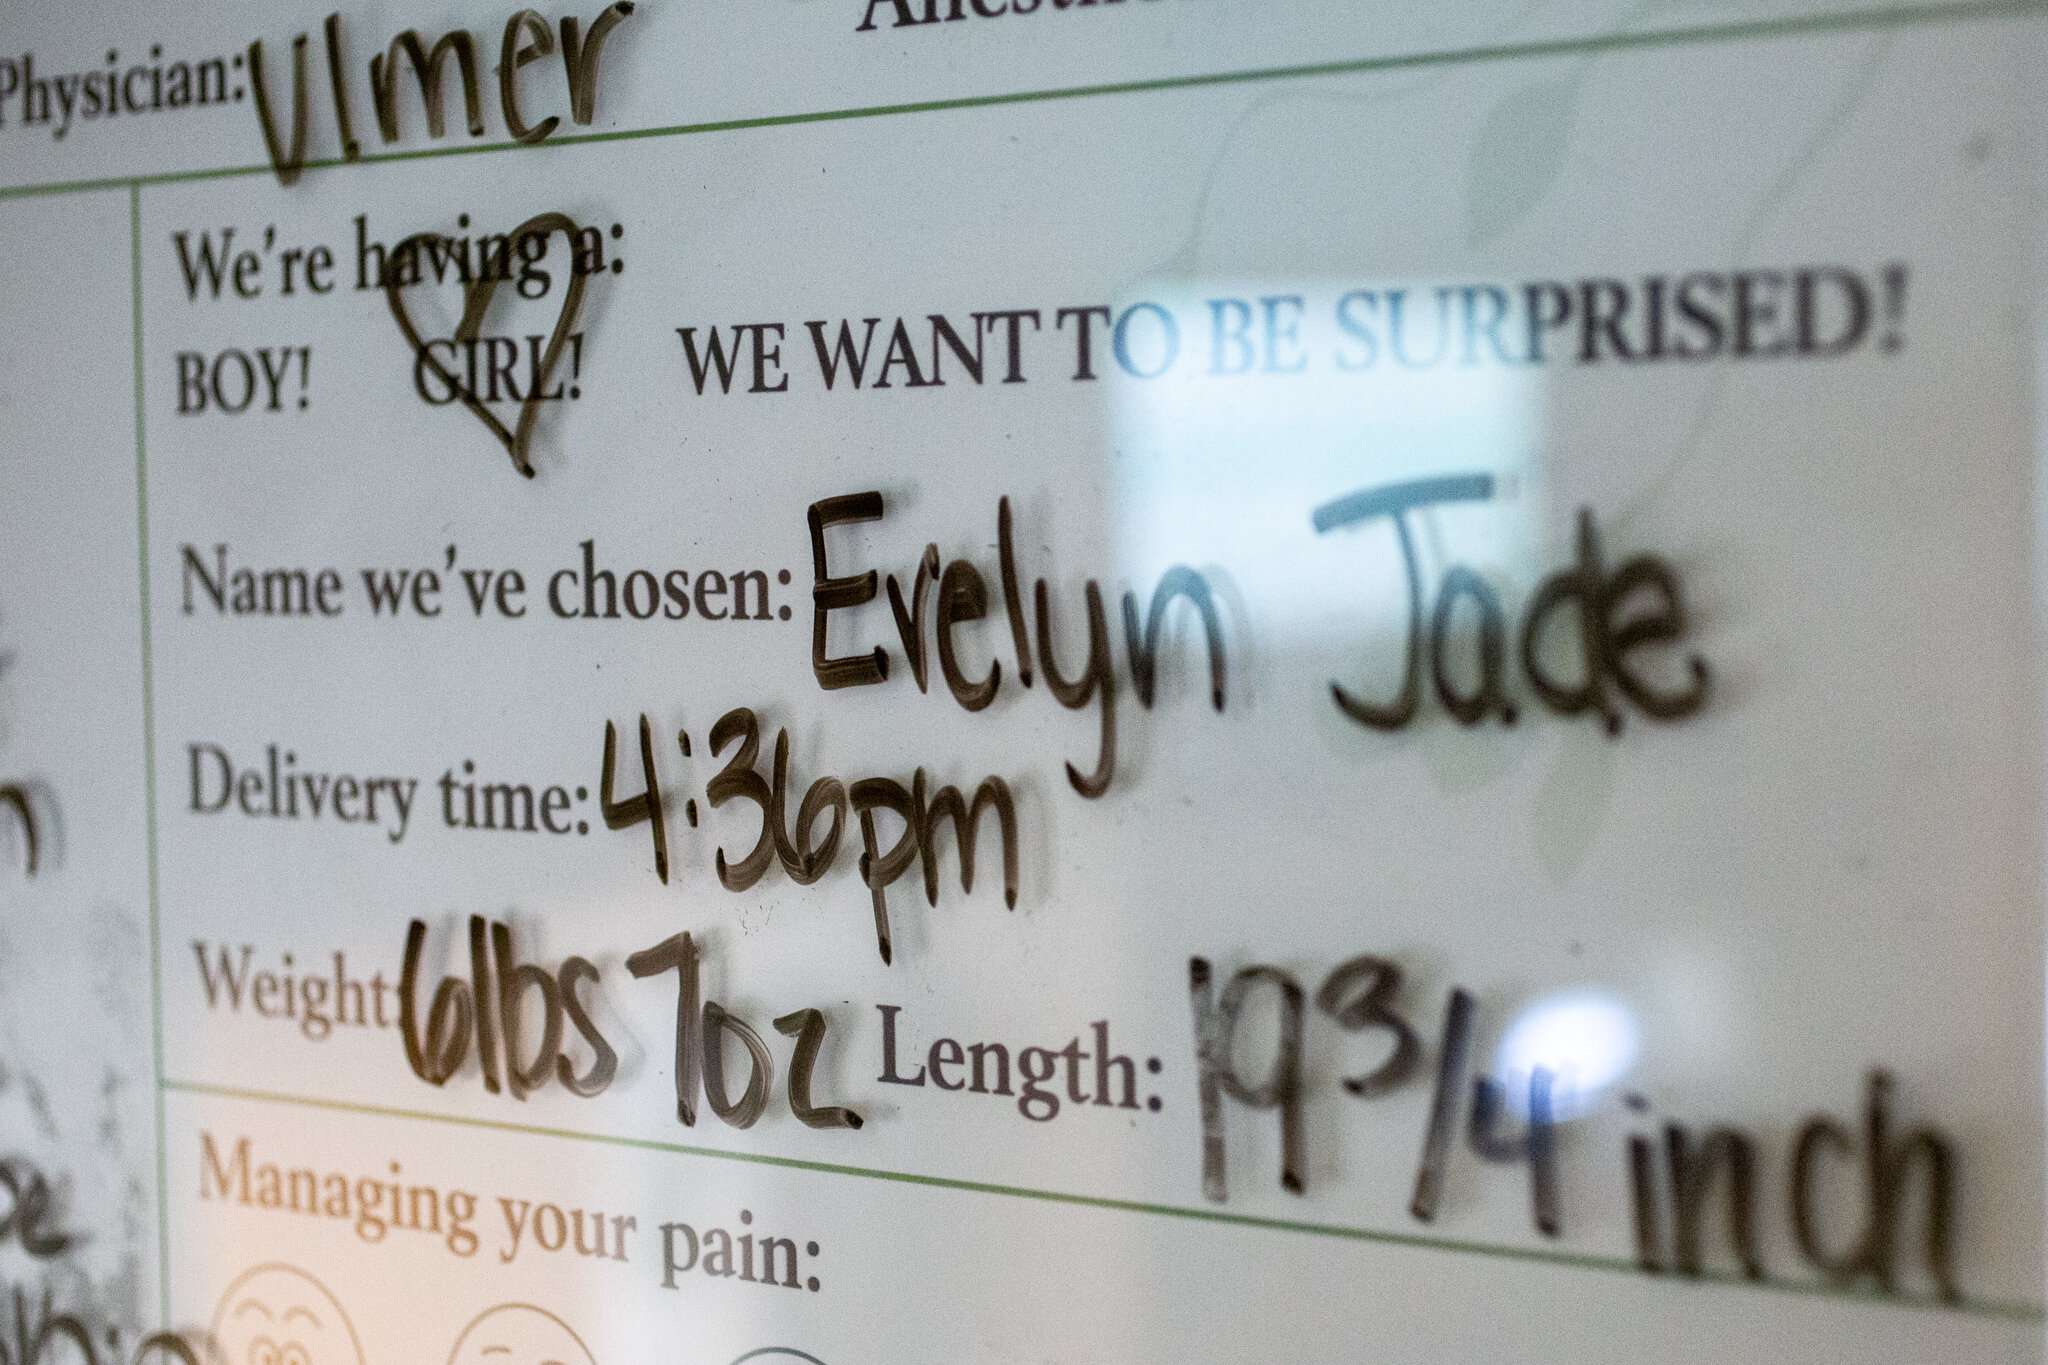 Physician: Ulmer
We're having a:
BOY! GIRL! WE WANT TO BE SURPRISED!
Name we've chosen: Evelyn Jade
Delivery time: 4:36pm
Weight: 6lbs 7oz Length: 19 3/4 inch
Managing your pain: